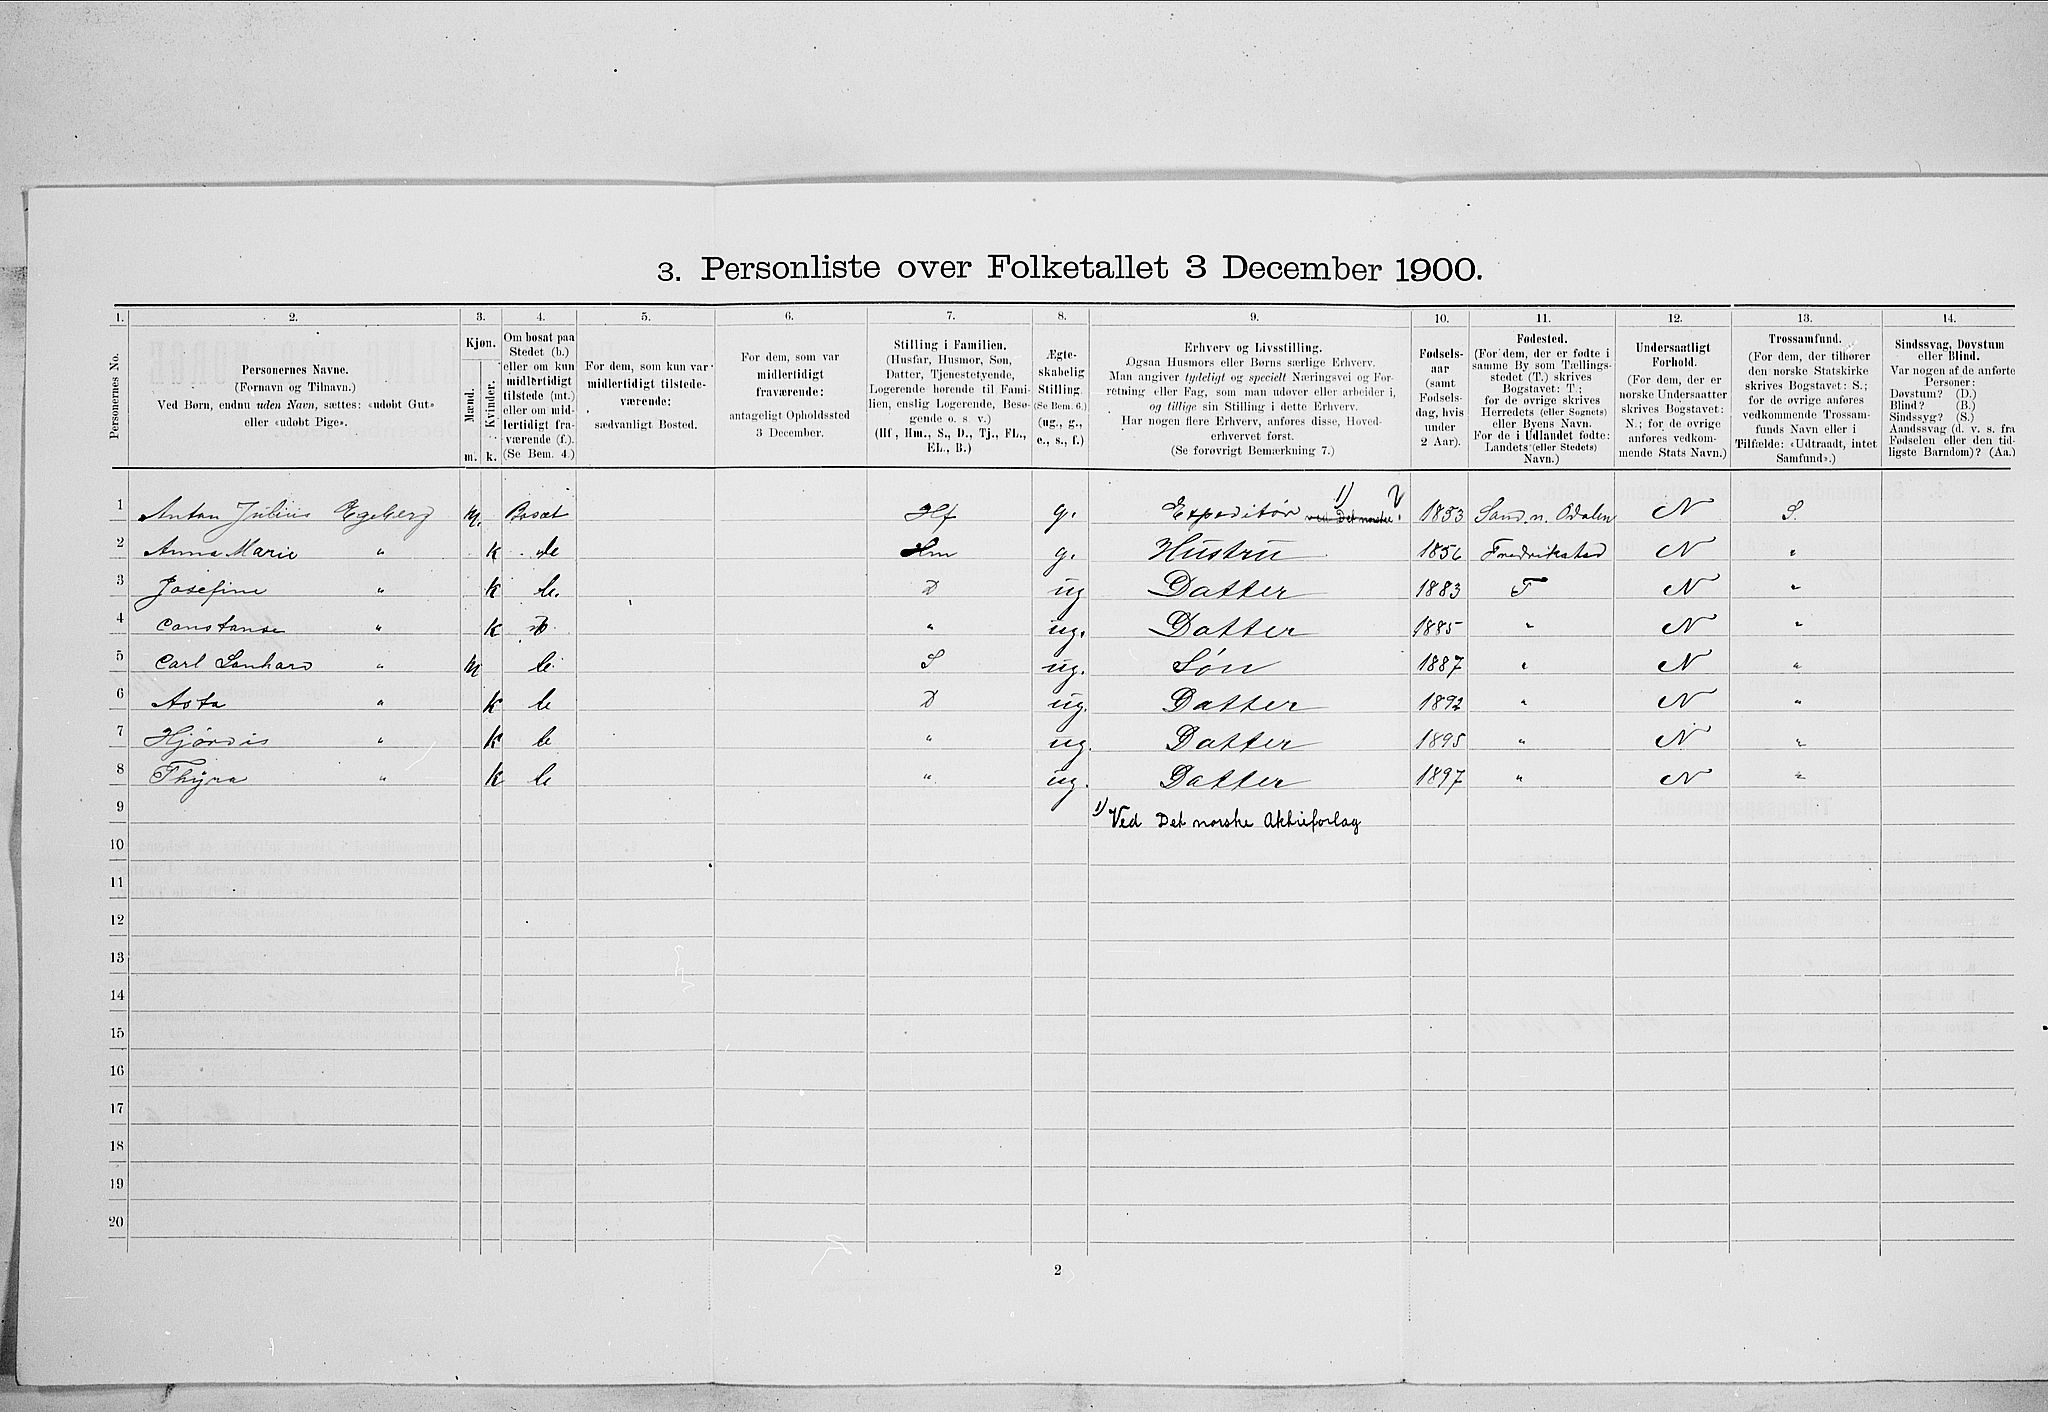 3. Personliste over Folketallet 3 December 1900.
1. 2. 3. 4. 5. 6. 7. 8. 9. 10. 11. 12. 13. 14.
Personernes No.
Personernes Navne.
(Fornavn og Tilnavn.)
Ved Børn, endnu uden Navn, sættes: «udøbt Gut»
eller «udøbt Pige».
Kjøn.
Mænd.
Kvinder.
m. k.
Om bosat paa
Stedet (b.)
eller om kun
midlertidigt
tilstede (mt.)
eller om mid-
lertidigt fra-
værende (f.).
(Se Bem. 4.)
For dem, som kun var
midlertidigt tilstede-
værende:
sædvanligt Bosted.
For dem, som var
midlertidigt
fraværende:
antageligt Opholdssted
3 December.
Stilling i Familien.
(Husfar, Husmor, Søn,
Datter, Tjenestetyende,
Logerende hørende til Fami-
lien, enslig Logerende, Besø-
gende o. s. v.)
(Hf., Hm., S., D., Tj., FL.,
EL., B.)
Ægte-
skabelig
Stilling.
(Se Bem. 6.)
(ug., g.,
e., s., f.)
Erhverv og Livsstilling.
Ogsaa Husmors eller Børns særlige Erhverv.
Man angiver tydeligt og specielt Næringsvei og For-
retning eller Fag, som man udøver eller arbeider i,
og tillige sin Stilling i dette Erhverv.
Har nogen flere Erhverv, anføres disse, Hoved-
erhvervet først.
(Se forøvrigt Bemærkning 7.)
Fødsels-
aar
(samt
Fødsels-
dag, hvis
under
2 Aar).
Fødested.
(For dem, der er fødte i
samme By som Tællings-
stedet (T.) skrives
Bogstavet: T.;
for de øvrige skrives
Herredets (eller Sognets)
eller Byens Navn.
For de i Udlandet fødte:
Landets (eller Stedets)
Navn.)
Undersaatligt
Forhold.
(For dem, der er
norske Undersaatter
skrives Bogstavet:
N.; for de øvrige
anføres vedkom-
mende Stats Navn.)
Trossamfund.
(For dem, der tilhører
den norske Statskirke
skrives Bogstavet: S.;
for de øvrige anføres
vedkommende Trossam-
funds Navn eller i
Tilfælde: «Udtraadt, intet
Samfund».)
Sindssvag, Døvstum
eller Blind.
Var nogen af de anførte
Personer:
Døvstum? (D.)
Blind? (B.)
Sindssyg? (S.)
Aandssvag (d. v. s. fra
Fødselen eller den tid-
ligste Barndom)? (Aa.)
1 Anton Julius Egeberg m. Bosat Hf g. Expeditør ved Det norske 1) 1853 Sand. n. Odalen N S.
2 Anna Marie " k b Hm g. Hustru 1856 Fredrikstad N "
3 Josefine " k b. D ug Datter 1883 T N "
4 Constanse " k b. " ug. Datter 1885 " N "
5 Carl Lenhard " m b. S ug. Søn 1887 " N "
6 Asta " k b D ug. Datter 1892 " N "
7 Hjørdis " k b " ug. Datter 1895 " N "
8 Thyra " k b " ug. Datter 1897 " N "
9 1) Ved Det norske Aktieforlag
10
11
12
13
14
15
16
17
18
19
20
2